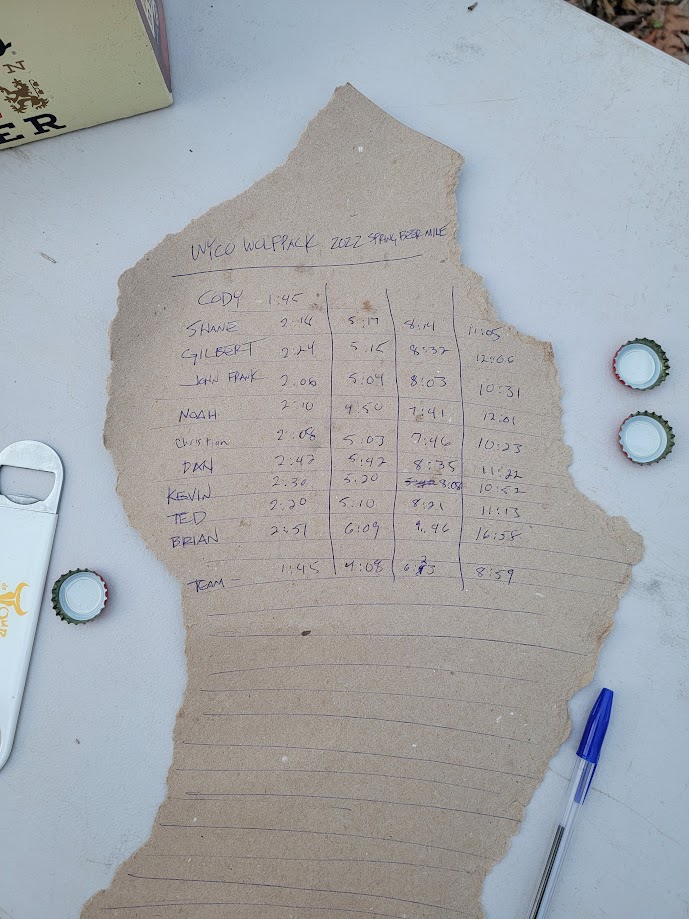 N
ER
WYCO WOLFPACK 2022 SPRING BEER MILE
CODY 1:45
SHANE 2:14 5:17 8:14 11:05
GILBERT 2:24 5:15 8:32 12:06
JOHN FRANK 2:06 5:04 8:03 10:31
NOAH 2:10 4:50 7:41 12:01
Christian 2:08 5:03 7:46 10:23
DAN 2:42 5:42 8:35 11:22
KEVIN 2:30 5:20 8:08 10:52
TED 2:20 5:10 8:21 11:13
BRIAN 2:51 6:09 9:46 16:58
TEAM 1:45 4:08 8:59